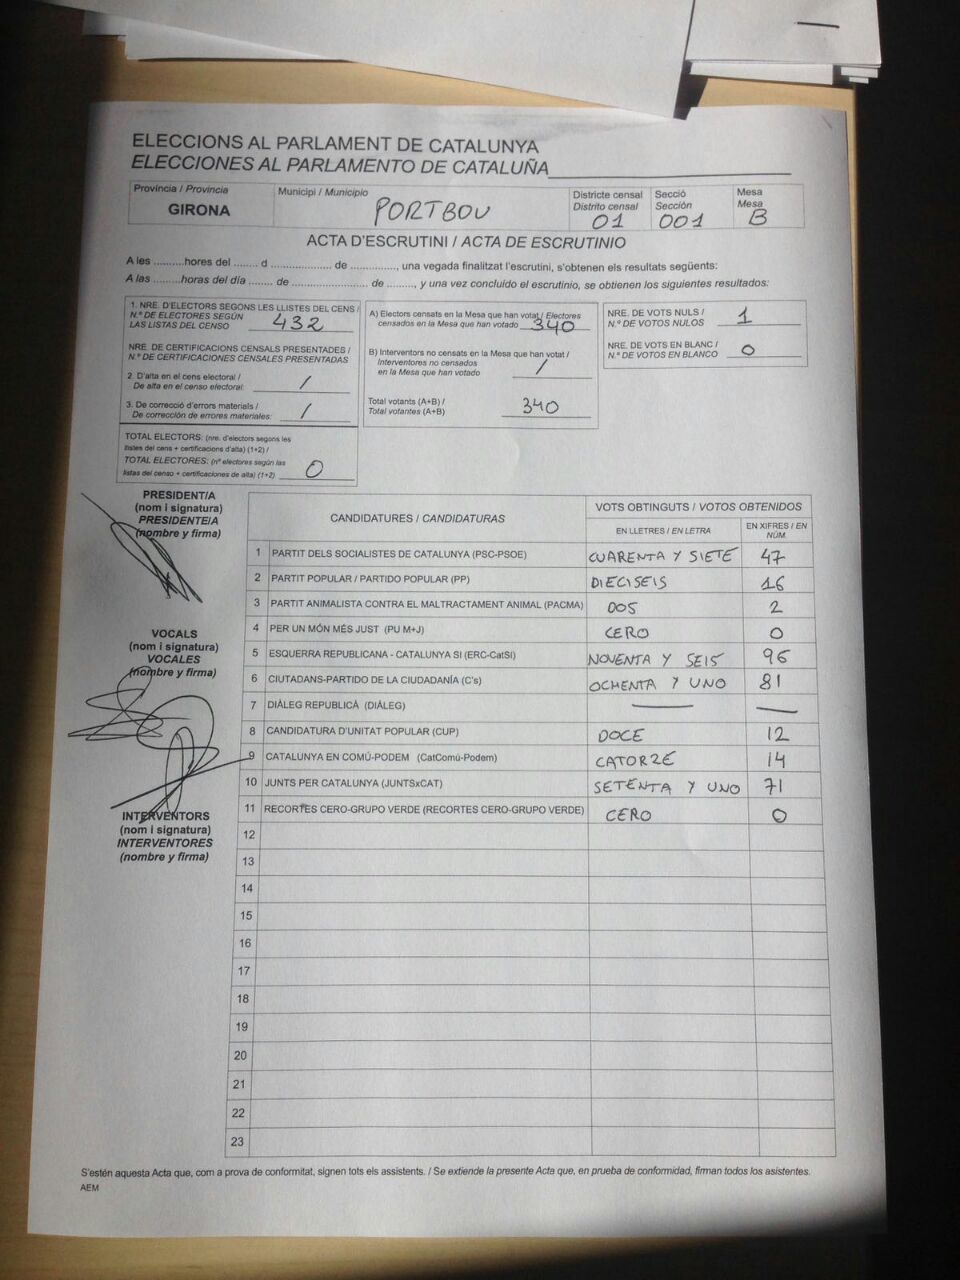 ELECCIONS AL PARLAMENT DE CATALUNYA
ELECCIONES AL PARLAMENTO DE CATALUÑA
Província / Provincia
GIRONA
Municipi / Municipio
PORTBOU
Districte censal
Distrito censal
01
Secció
Sección
001
Mesa
Mesa
B
ACTA D'ESCRUTINI / ACTA DE ESCRUTINIO
A les ..........hores del ........ d .................... de ..............., una vegada finalitzat l'escrutini, s'obtenen els resultats següents:
A las .........horas del día ........ de ......................... de ........., y una vez concluído el escrutinio, se obtienen los siguientes resultados:
1. NRE. D'ELECTORS SEGONS LES LLISTES DEL CENS /
N.º DE ELECTORES SEGÚN
LAS LISTAS DEL CENSO 432
NRE. DE CERTIFICACIONS CENSALS PRESENTADES /
N.º DE CERTIFICACIONES CENSALES PRESENTADAS
2. D'alta en el cens electoral /
De alta en el censo electoral: /
3. De correcció d'errors materials /
De corrección de errores materiales: /
TOTAL ELECTORS: (nre. d'electors segons les
llistes del cens + certificacions d'alta) (1+2) /
TOTAL ELECTORES: (nº electores según las
listas del censo + certificaciones de alta) (1+2) 0
A) Electors censats en la Mesa que han votat / Electores
censados en la Mesa que han votado 340
B) Interventors no censats en la Mesa que han votat /
Interventores no censados
en la Mesa que han votado /
Total votants (A+B) /
Total votantes (A+B) 340
NRE. DE VOTS NULS /
N.º DE VOTOS NULOS 1
NRE. DE VOTS EN BLANC /
N.º DE VOTOS EN BLANCO 0
PRESIDENT/A
(nom i signatura)
PRESIDENTE/A
(nombre y firma)
VOCALS
(nom i signatura)
VOCALES
(nombre y firma)
INTERVENTORS
(nom i signatura)
INTERVENTORES
(nombre y firma)
CANDIDATURES / CANDIDATURAS
VOTS OBTINGUTS / VOTOS OBTENIDOS
EN LLETRES / EN LETRA
EN XIFRES / EN NÚM.
1 PARTIT DELS SOCIALISTES DE CATALUNYA (PSC-PSOE) CUARENTA Y SIETE 47
2 PARTIT POPULAR / PARTIDO POPULAR (PP) DIECISEIS 16
3 PARTIT ANIMALISTA CONTRA EL MALTRACTAMENT ANIMAL (PACMA) DOS 2
4 PER UN MÓN MÉS JUST (PU M+J) CERO 0
5 ESQUERRA REPUBLICANA - CATALUNYA SI (ERC-CatSí) NOVENTA Y SEIS 96
6 CIUTADANS-PARTIDO DE LA CIUDADANÍA (C's) OCHENTA Y UNO 81
7 DIÀLEG REPUBLICÀ (DIÀLEG) — —
8 CANDIDATURA D'UNITAT POPULAR (CUP) DOCE 12
9 CATALUNYA EN COMÚ-PODEM (CatComú-Podem) CATORZE 14
10 JUNTS PER CATALUNYA (JUNTSxCAT) SETENTA Y UNO 71
11 RECORTES CERO-GRUPO VERDE (RECORTES CERO-GRUPO VERDE) CERO 0
12
13
14
15
16
17
18
19
20
21
22
23
S'estén aquesta Acta que, com a prova de conformitat, signen tots els assistents. / Se extiende la presente Acta que, en prueba de conformidad, firman todos los asistentes.
AEM